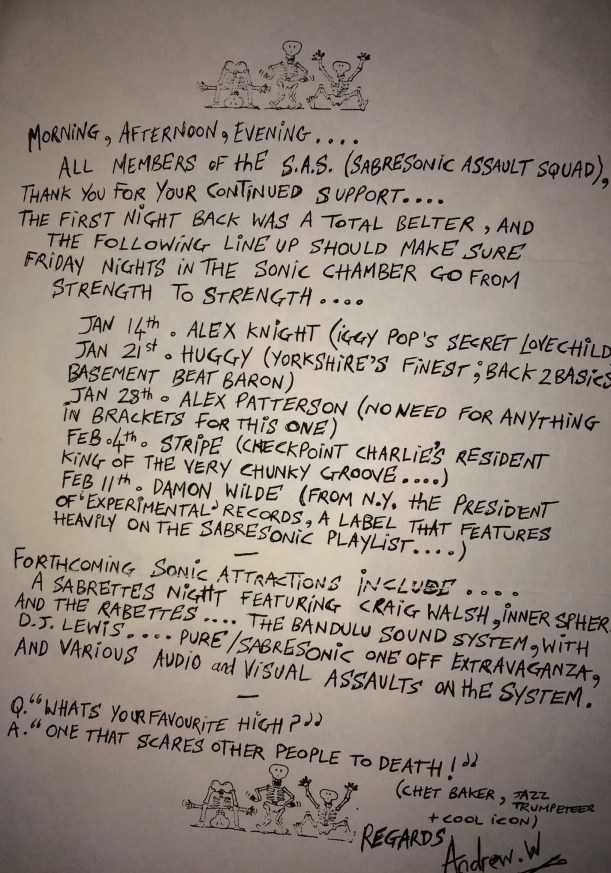 MORNING, AFTERNOON, EVENING....
ALL MEMBERS OF thE S.A.S. (SABRESONIC ASSAULT SQUAD),
THANK YOU FOR YOUR CONTINUED SUPPORT....
THE FIRST NIGHT BACK WAS A TOTAL BELTER, AND
THE FOLLOWING LINE UP SHOULD MAKE SURE
FRIDAY NIGHTS IN THE SONIC CHAMBER GO FROM
STRENGTH TO STRENGTH....
JAN 14th. ALEX KNIGHT (iGGY POP'S SECRET LOVECHILD
JAN 21st. HUGGY (YORKSHIRE'S FINEST; BACK 2 BASiCS
BASEMENT BEAT BARON)
JAN 28th. ALEX PATTERSON (NO NEED FOR ANYTHING
IN BRACKETS FOR THIS ONE)
FEB.4th. STRIPE (CHECKPOINT CHARLIE'S RESIDENT
KING OF THE VERY CHUNKY GROOVE....)
FEB 11th. DAMON WILDE (FROM N.Y. thE PRESIDENT
OF 'EXPERIMENTAL' RECORDS, A LABEL THAT FEATURES
HEAVILY ON THE SABRESONIC PLAYLIST....)
—
FORTHCOMING SONIC ATTRACTIONS iNCLUDE....
A SABRETTES NIGHT FEATURING CRAIG WALSH, INNER SPHER
AND THE RABETTES.... THE BANDULU SOUND SYSTEM, WITH
D.J. LEWIS.... PURE/SABRESONIC ONE OFF EXTRAVAGANZA,
AND VARIOUS AUDIO and ViSUAL ASSAULTS ON thE SYSTEM.
—
Q. "WHATS YOUR FAVOURITE HIGH?"
A. "ONE THAT SCARES OTHER PEOPLE TO DEATH!"
(CHET BAKER, JAZZ
TRUMPETEER
+ COOL iCON)
REGARDS
Andrew.W